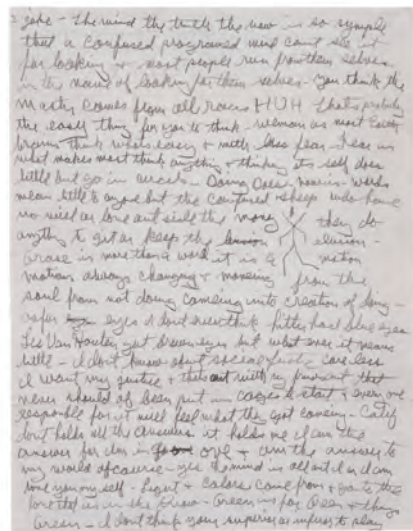 joke - the mind the truth the now is so symple
that a confused programed mind cant see it
for looking & most people run from them selves
in the name of looking for them selves - you think the
master comes from all races HUH thats probly
the easy thing for you to think - woman as most Earth
brains think whats easy & with less fear - fear is
what makes most think anything & thinking its self does
little but go in circels - Going words
mean little to anyone but the confused sheep who have
no mind as love out side the money they do
anything to get or keep the elusion -
is more than a word it is a motion
motions always changing & moveing from the
soul from not doing comeing into creation of being -
eyes I dont even think hitler had blue eyes
Les Van Houten got brown eyes but what ever it means
little - I dont know about social care less
I want my justice & with my that
never should of been put in cages to start & every one
responsible for it will feel what they got comeing - Calif
dont holds all the answers it holds me I am the
answer for I am in love & am the answer to
my world of course - yes the mind is all out in I am
you my self - Light & colors come from & go to the
that is in the Green is for &
Green - I dont think your superior or inferior to